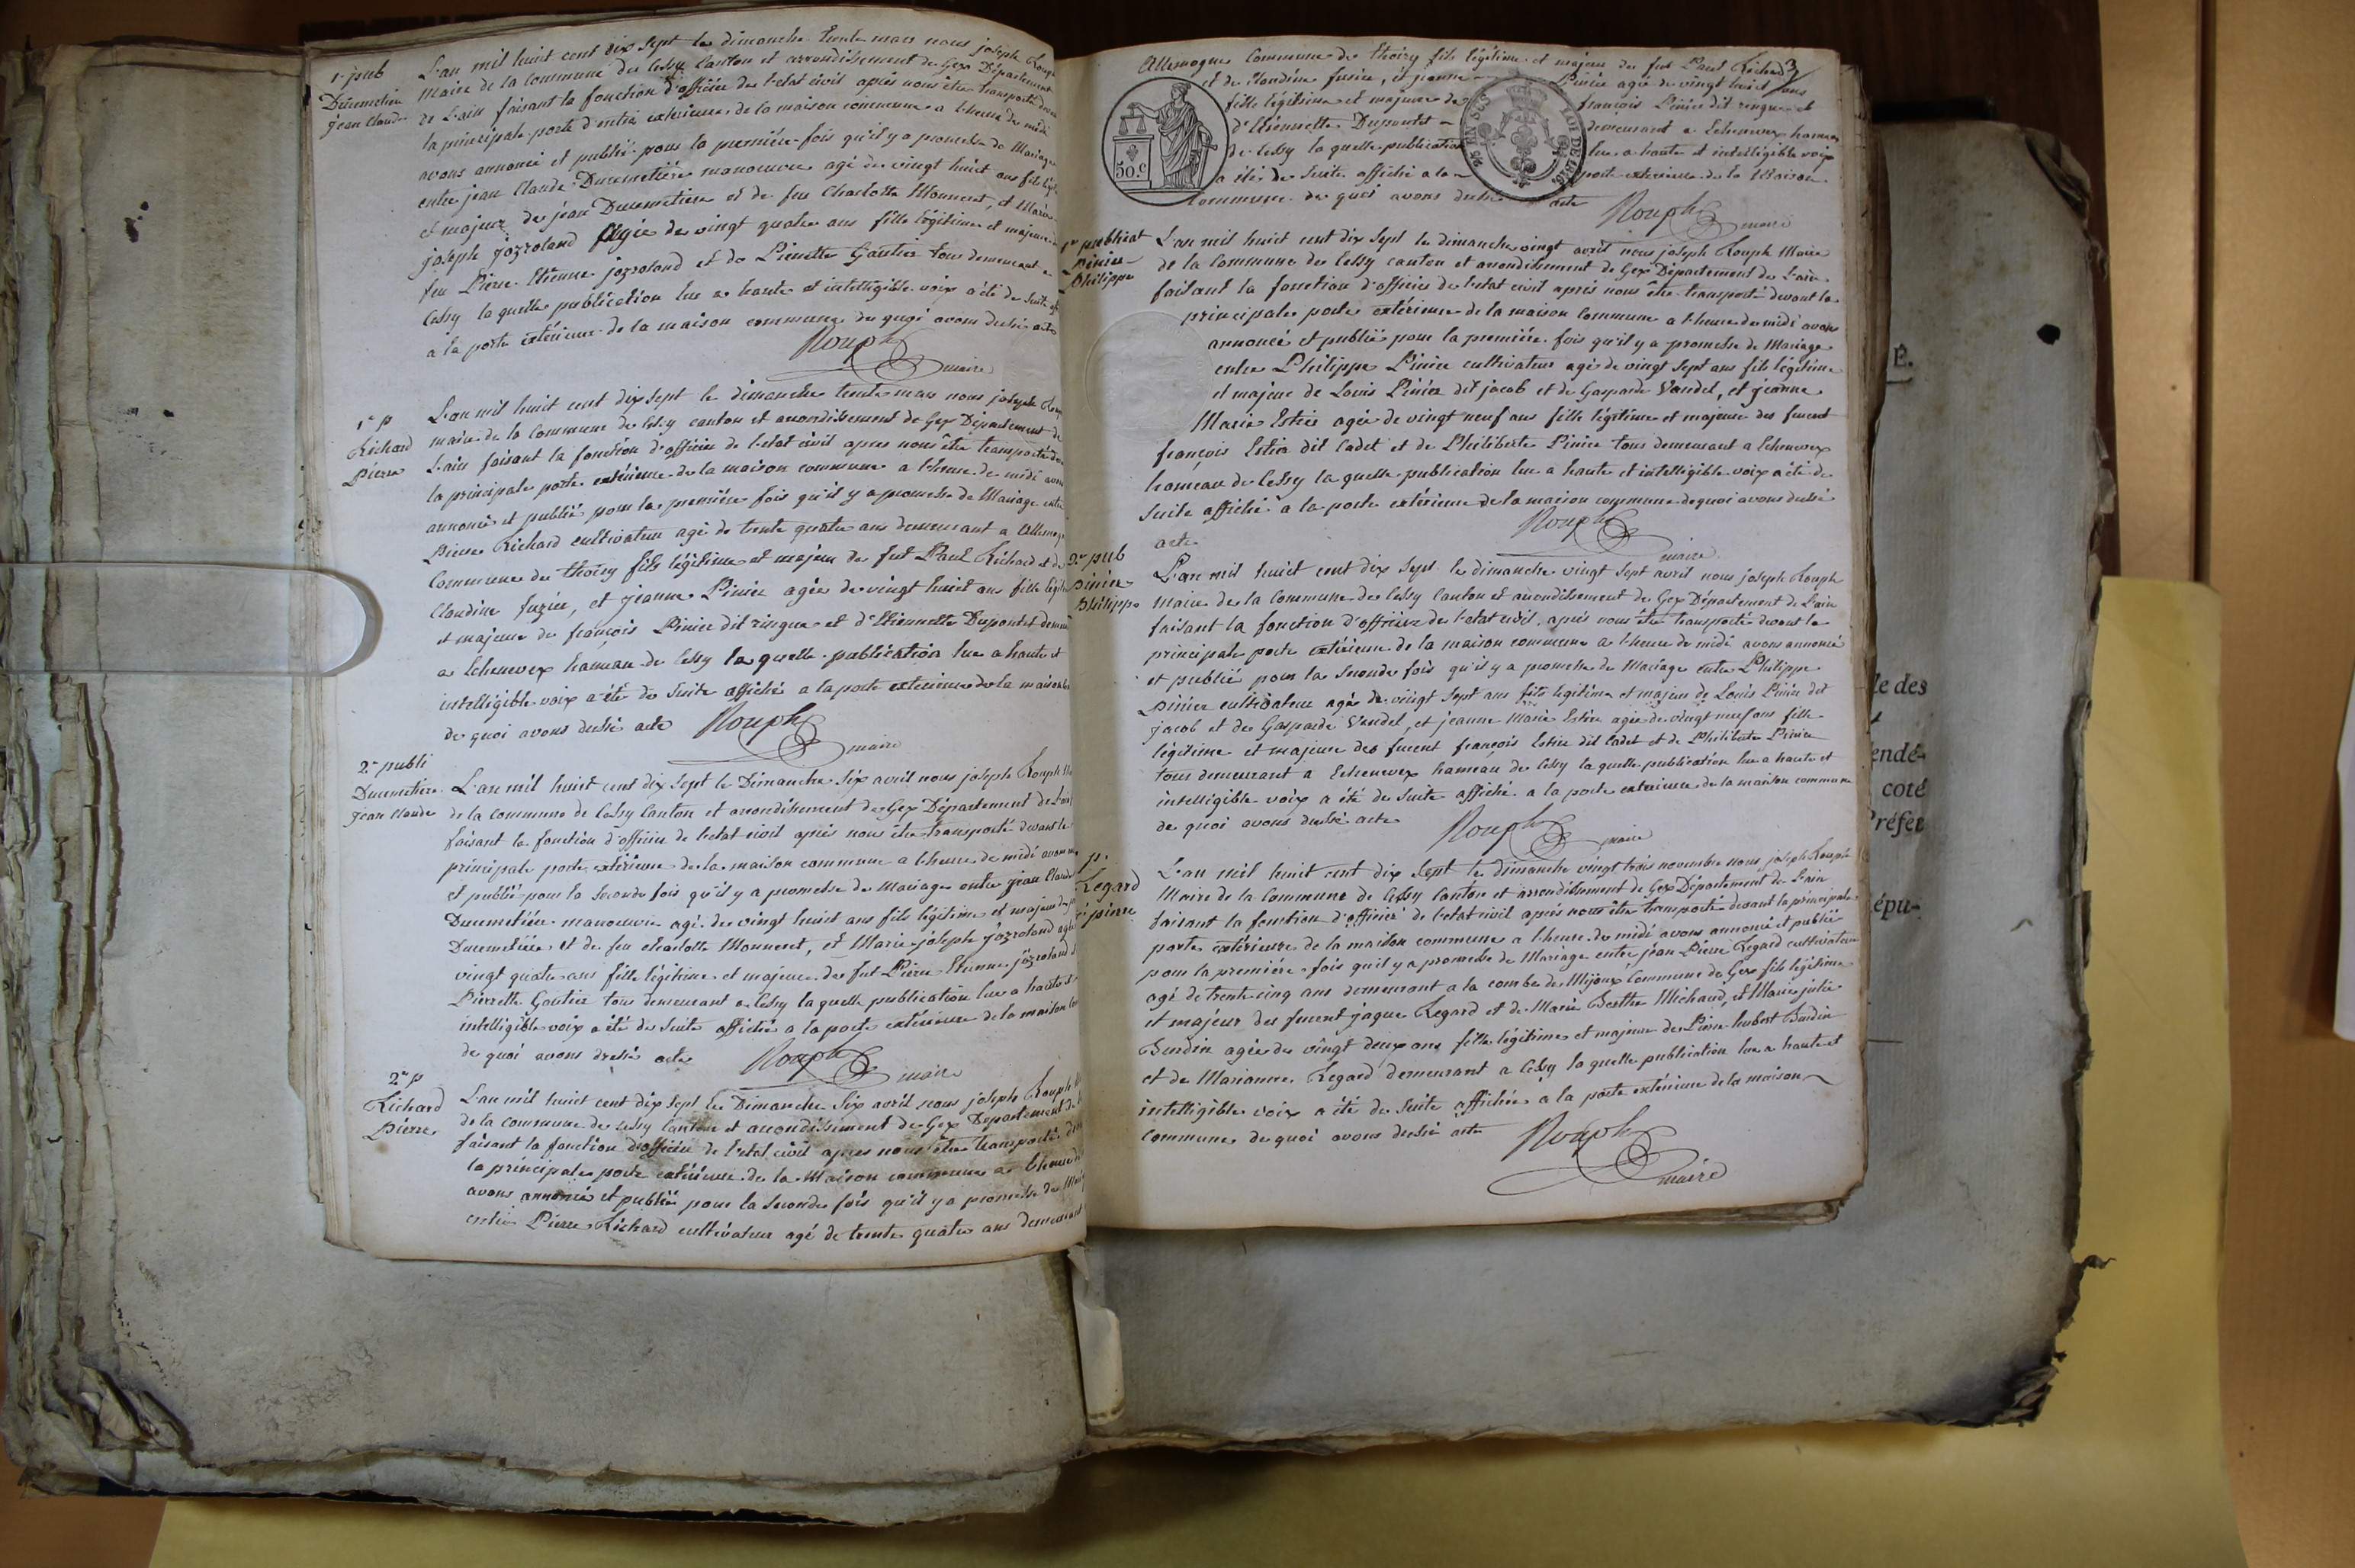 1. pub
Ducemetière
jean Claude
L'an mil huit cent dix sept le dimanche trente mars nous joseph Rouph
Maire de la Commune de Cessy Canton et arrondissement de Gex Département
de L'ain faisant la fonction d'officier de l'etat civil après nous être transporté devant
la principale porte d'entrée extérieure de la maison commune a l'heure de midi
avons annoncé et publié pour la première fois qu'il y a promesse de Mariage
entre jean Claude Ducemetière manoeuvre agé de vingt huit ans fils légit
et majeur de jean Ducemetière et de feu Charlotte Monneret, et Marie
joseph jozroland agée de vingt quatre ans fille légitime et majeure de
feu Pierre Etienne jozroland et de Pierrette Gautier tous demeurant a
Cessy la quelle publication lue a haute et intelligible voix a été de suite aff
a la porte extérieure de la maison commune de quoi avons dressé acte
Rouph
maire
1er p
Richard
Pierre
L'an mil huit cent dix sept le dimanche trente mars nous joseph Roup
maire de la Commune de Cessy canton et arrondissement de Gex Département de
L'ain faisant la fonction d'officier de l'etat civil apres nous être transporté dev
la principale porte extérieure de la maison commune a l'heure de midi avon
annoncé et publié pour la première fois qu'il y a promesse de Mariage entre
Pierre Richard cultivateur agé de trente quatre ans demeurant a Allemog
Commune de thoiry fils légitime et majeur de fut Paul Richard et de
Claudine fuzier, et jeanne Pinier agée de vingt huit ans fille légit
et majeure de françois Pinier dit ringue et d'Etiennette Dupontet demeu
a Echenevex hameau de Cessy la quelle publication lue a haute et
intelligible voix a été de suite affiché a la porte extérieure de la maison
de quoi avons dressé acte Rouph
maire
2e publi
Ducemetière
jean Claude
L'an mil huit cent dix sept le Dimanche six avril nous joseph Rouph M
de la commune de Cessy Canton et arrondissement de Gex Département de L'ain
faisant la fonction d'officier de l'etat civil après nous être transporté devant la
principale porte extérieure de la maison commune a l'heure de midi avons ann
et publié pour la seconde fois qu'il y a promesse de Mariage entre jean Claude
Ducemetière manoeuvre agé de vingt huit ans fils légitime et majeur de j
Ducemetière et de feu charlotte Monneret, et Marie joseph jozroland agée
vingt quatre ans fille légitime et majeure de fut Pierre Etienne jozroland
Pierrette Gautier tous demeurant a Cessy la quelle publication lue a haute et
intelligible voix a été de suite affiché a la porte extérieure de la maison Com
de quoi avons dressé acte Rouph
maire
2e p
Richard
Pierre
L'an mil huit cent dix sept le Dimanche six avril nous joseph Rouph
de la commune de Cessy Canton et arrondissement de Gex Département de
faisant la fonction d'officier de l'etat civil apres nous être transporté dev
la principale porte extérieure de la Maison commune a l'heure de
avons annoncé et publié pour la seconde fois qu'il y a promesse de Mari
entre Pierre Richard cultivateur agé de trente quatre ans demeurant
3
Allemogne Commune de thoiry fils légitime et majeur de fut Paul Richard
et de Claudine fuzier, et jeanne Pinier agée de vingt huit ans
fille légitime et majeure de françois Pinier dit ringue et
d'Etiennette Dupontet demeurant a Echenevex hameau
de Cessy la quelle publication lue a haute et intelligible voix
a été de suite affiché a la porte extérieure de la Maison
Commune de quoi avons dressé acte Rouph
maire
50.c
LOI DE 1816.
1er publicat
Pinier
Philippe
L'an mil huit cent dix sept le dimanche vingt avril nous joseph Rouph Maire
de la Commune de Cessy canton et arrondissement de Gex Département de L'ain
faisant la fonction d'officier de l'etat civil après nous être transporté devant la
principale porte extérieure de la maison Commune a l'heure de midi avons
annoncé et publié pour la première fois qu'il y a promesse de Mariage
entre Philippe Pinier cultivateur agé de vingt sept ans fils légitime
et majeur de Louis Pinier dit jacob et de Gasparde Vandel, et jeanne
Marie Estier agée de vingt neuf ans fille légitime et majeure des furent
françois Estier dit Cadet et de Philiberte Pinier tous demeurant a Echenevex
hameau de Cessy la quelle publication lue a haute et intelligible voix a été de
suite affiché a la porte extérieure de la maison commune de quoi avons dressé
acte Rouph
maire
2e pub
Pinier
Philippe
L'an mil huit cent dix sept le dimanche vingt sept avril nous joseph Rouph
Maire de la Commune de Cessy Canton et arrondissement de Gex Département de L'ain
faisant la fonction d'officier de l'etat civil après nous être transporté devant la
principale porte extérieure de la maison commune a l'heure de midi avons annoncé
et publié pour la seconde fois qu'il y a promesse de Mariage entre Philippe
Pinier cultivateur agé de vingt sept ans fils légitime et majeur de Louis Pinier dit
jacob et de Gasparde Vandel, et jeanne Marie Estier agée de vingt neuf ans fille
légitime et majeure des furent françois Estier dit Cadet et de Philiberte Pinier
tous demeurant a Echenevex hameau de Cessy la quelle publication lue a haute et
intelligible voix a été de suite affiché a la porte extérieure de la maison commune
de quoi avons dressé acte Rouph
maire
p.
Regard
pierre
L'an mil huit cent dix sept le dimanche vingt trois novembre nous joseph Rouph
Maire de la Commune de Cessy Canton et arrondissement de Gex Département de L'ain
faisant la fonction d'officier de l'etat civil après nous être transporté devant la principale
porte extérieure de la maison commune a l'heure de midi avons annoncé et publié
pour la première fois qu'il y a promesse de Mariage entre jean Pierre Regard cultivateur
agé de trente cinq ans demeurant a la combe de Mijoux Commune de Gex fils légitime
et majeur des furent jaque Regard et de Marie Berthe Michaud, et Marie julie
Burdin agée de vingt deux ans fille légitime et majeure de Pierre hubert Burdin
et de Marianne Regard demeurant a Cessy la quelle publication lue a haute et
intelligible voix a été de suite affichée a la porte extérieure de la maison
commune de quoi avons dressé acte Rouph
maire
E.
le des
endé-
coté
Préfet
épu-